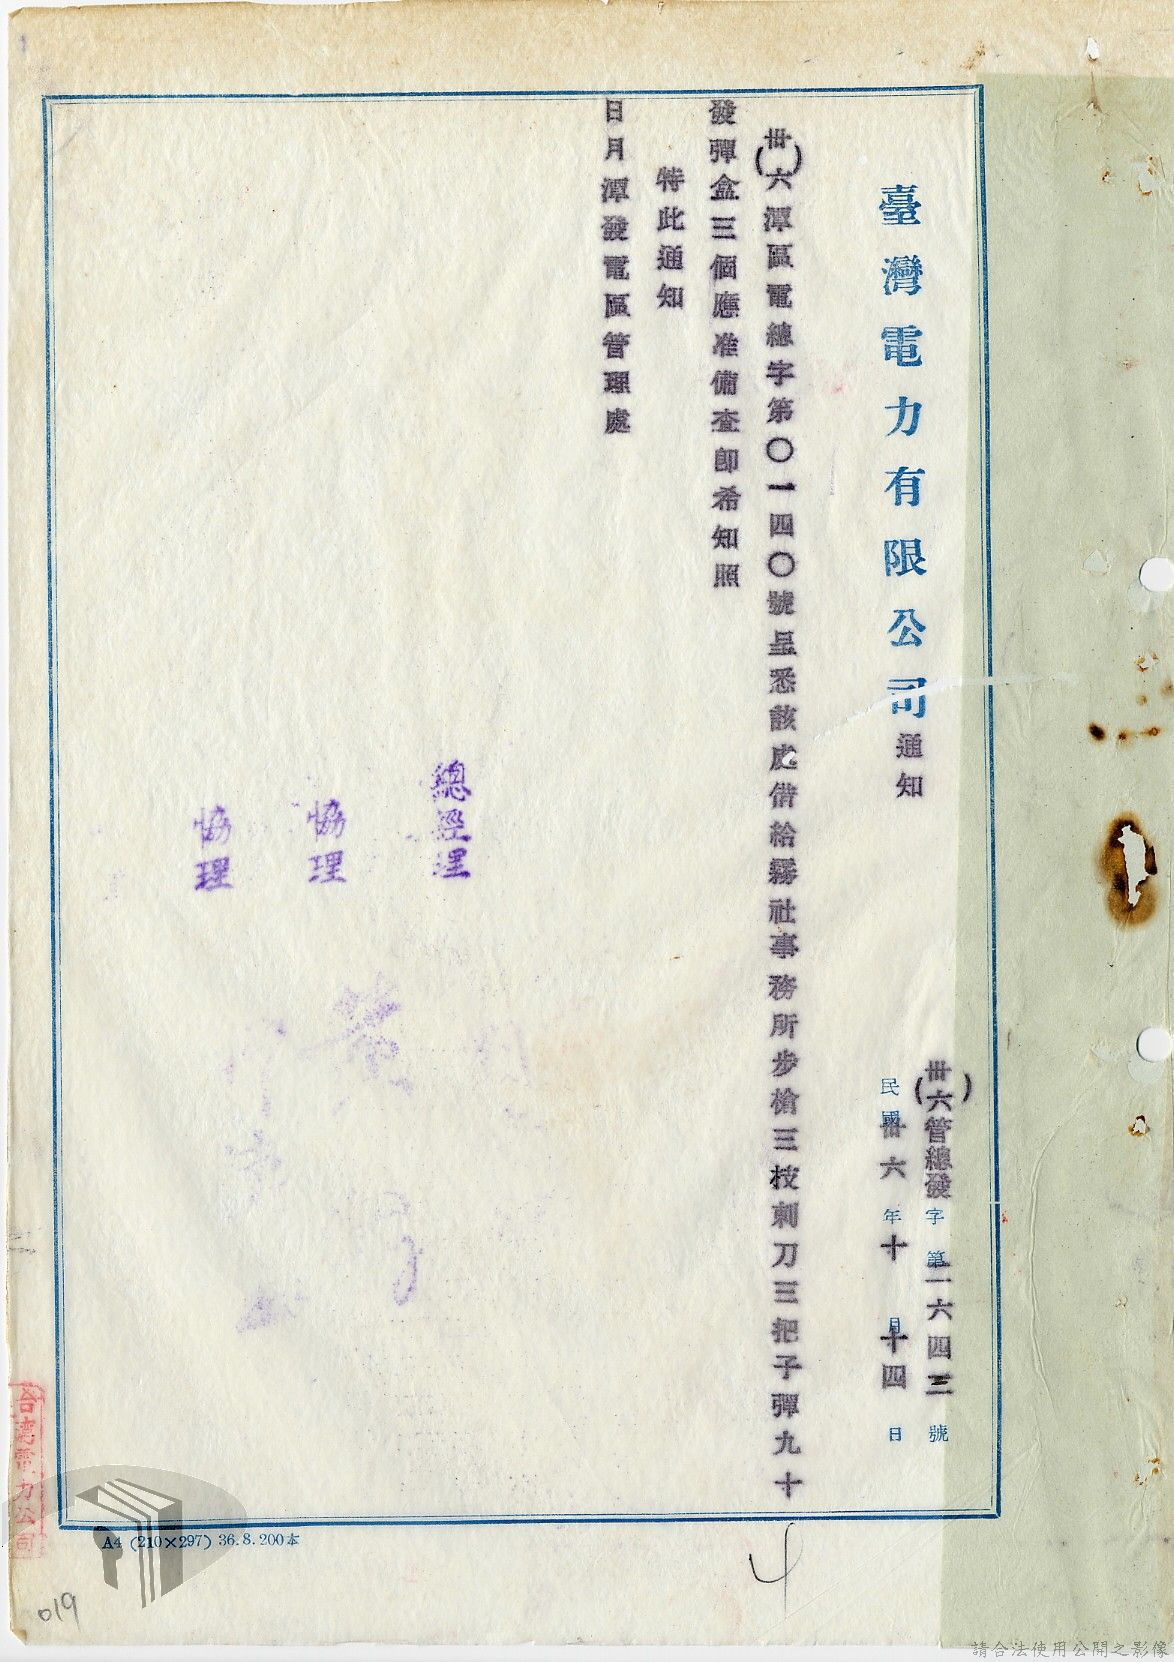 臺灣電力有限公司通知
(卅六)管總發字第二六四三號
民國卅六年十月十四日
(卅六)潭區電總字第〇一四〇號呈悉該處借給霧社事務所步槍三枝刺刀三把子彈九十
發彈盒三個應准備查即希知照
特此通知
日月潭發電區管理處
總經理
協理
協理
台灣電力公司
A4 (210×297) 36.8.200本
4
019
請合法使用公開之影像